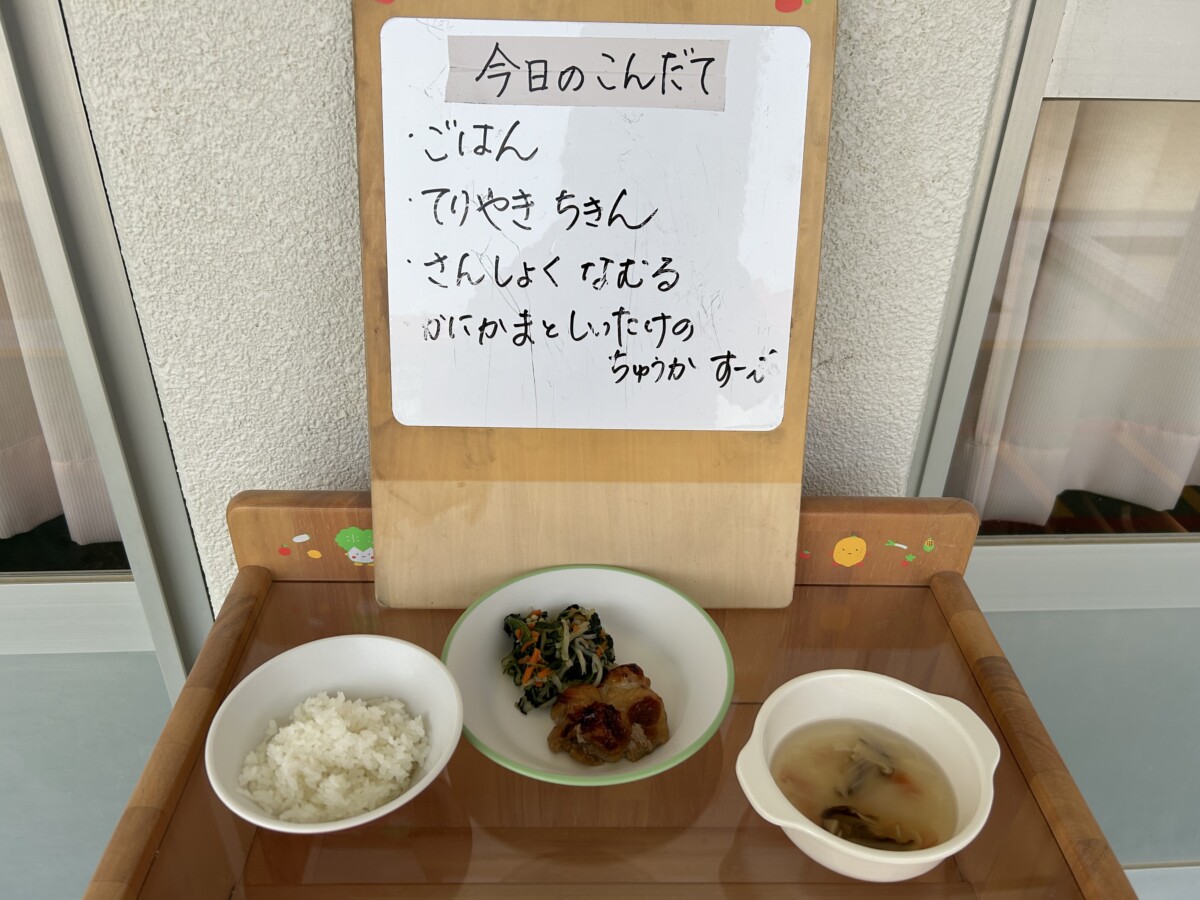 今日のこんだて
・ごはん
・てりやき ちきん
・さんしょく なむる
かにかまとしいたけの
ちゅうか すーぷ